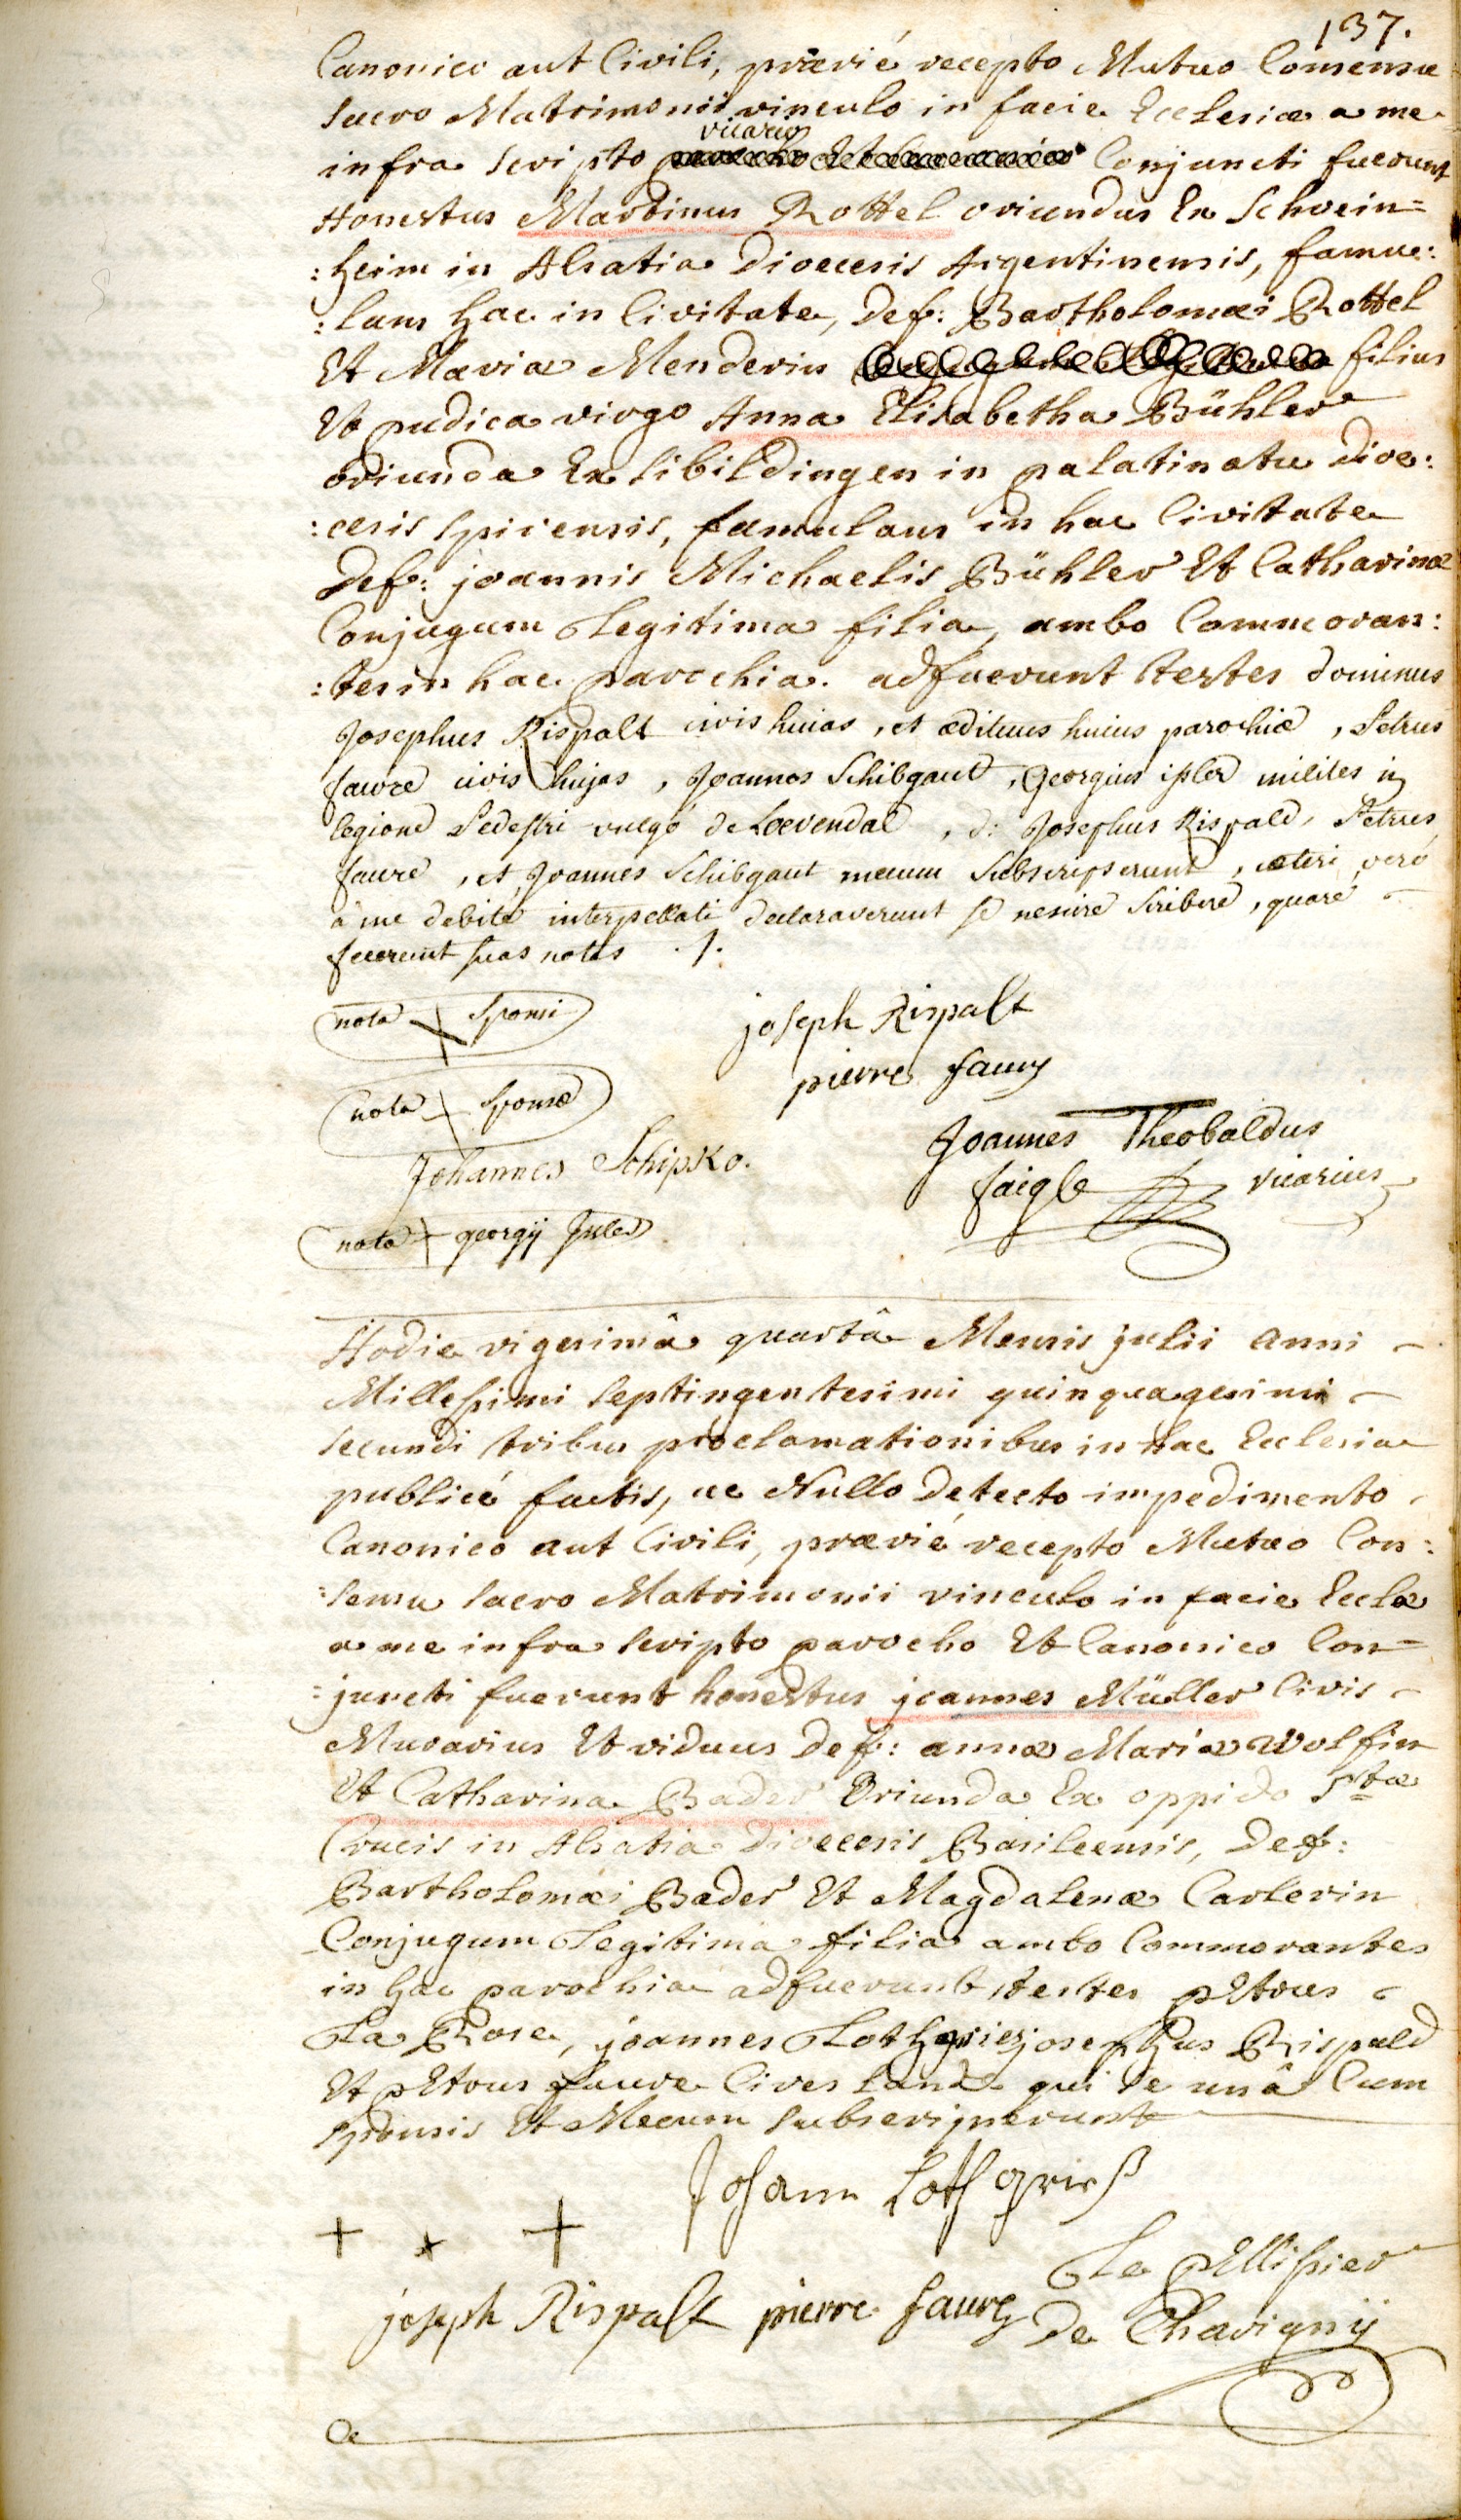 137.
Canonico aut Civili, prævié recepto Mutuo Consensu
sacro Matrimonii vinculo in facie Ecclesiæ a me
vicario
infra scripto Conjuncti fuerunt
Honestus Martinus Rottel oriundus Ex Schwein=
:heim in Alsatia Dioecesis Argentinensis, famu:
:lans hac in Civitate, Def: Bartholomæi Rottel
Et Mariæ Menderin filius
Et pudica virgo Anna Elisabetha Bühler
oriunda Ex Sibildingen in palatinatu Dioe:
:cesis spirensis, famulans in hac Civitate
Def: joannis Michaelis Bühler Et Catharinæ
Conjugum Legitima filia, ambo Commoran:
:tes in hac parochia. adfuerunt testes dominus
Josephus Rispalt civis huias, et ædituus huius parochiæ, Petrus
faure civis hujas, Joannes Schibgaut, Georgius isler milites in
legione Pedestri vulgó de Loevendal, d: Josephus Rispald, Petrus
faure, et Joannes Schibgaut mecum Subscripserunt, cæteri veró
á me debite interpellati declaraverunt se nescire scribere, quare
fecerunt suas notas ./.
nota sponsi
joseph Rispalt
pierre faure
nota sponsæ
Joannes Theobaldus
Johannes Schipko.
faigle vicarius
nota georgij
Hodie vigesimâ quartâ Mensis julii anni
Millesimi septingentesimi quinquagesimi
secundi tribus proclamationibus in hac Ecclesia
publicé factis, ac Nullo detecto impedimento
Canonico aut Civili, prævié recepto Mutuo Con:
:sensu sacro Matrimonii vinculo in facie Ecclæ
a me infra scripto parocho Et Canonico Con=
:juncti fuerunt honestus joannes Müller Civis
Murarius Et viduus Def: annæ Mariæ Wolfin
Et Catharina Bader Oriunda Ex oppido Stæ
Crucis in Alsatia Dioecesis Basileensis, Def:
Bartholomæi Bader Et Magdalenæ Carlerin
Conjugum Legitima filia ambo Commorantes
in hac parochia adfuerunt testes pEtrus
La Rose, joannes Lothgries josephus Rispald
Et pEtrus faure Cives Land: qui se unâ Cum
sponsis Et Mecum subscripserunt
Johann Lothgrieß
+ + +
Le pEllissier
joseph Rispalt pierre faure De Chavignÿ